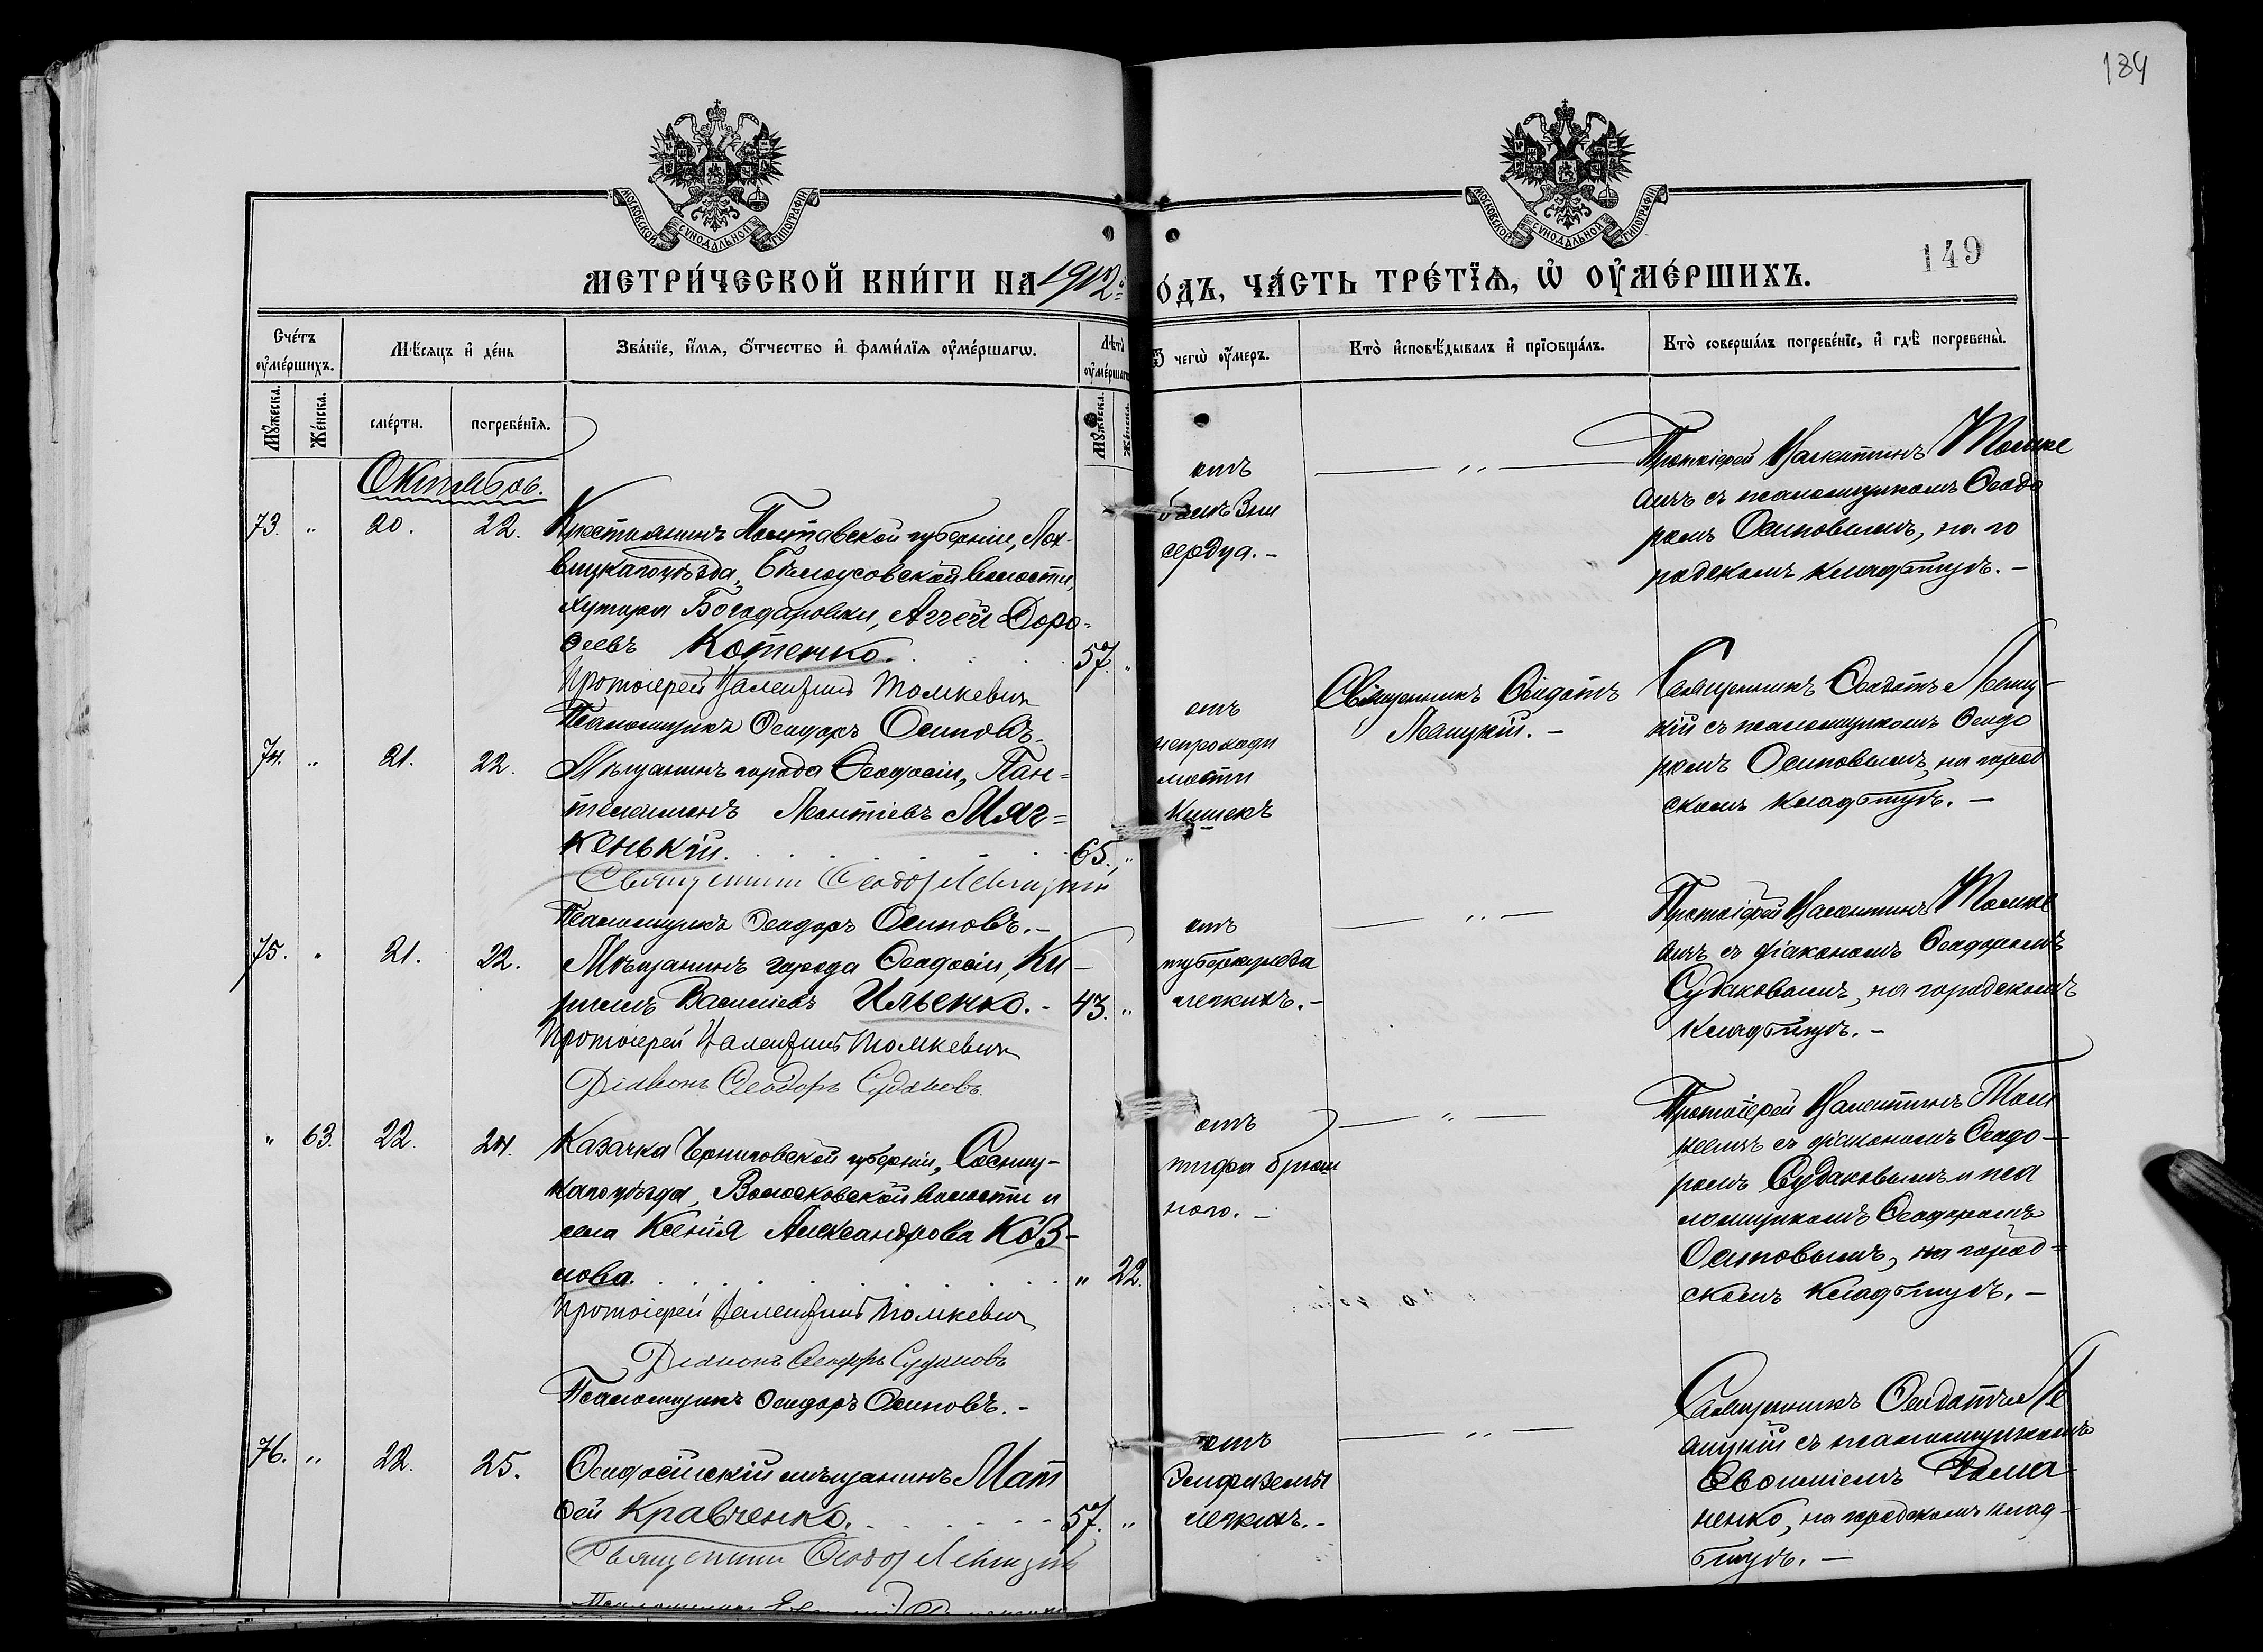 184
МОСКОВСКОЙ СУНОДАЛЬНОЙ ТИПОГРАФІИ
МОСКОВСКОЙ СУНОДАЛЬНОЙ ТИПОГРАФІИ
149
МЕТРИ́ЧЕСКОЙ КНИ́ГИ НА 1912 ГО́ДЪ, ЧА́СТЬ ТРЕ́ТЇѦ, Ѡ҆ ОУ҆МЕ́РШИХЪ.
Сче́тъ оу҆ме́ршихъ.
Мѣ́сяцъ и҆ де́нь
Зва́нїе, и҆́мя, ѻ҆́тчество и҆ фами́лїя оу҆ме́ршагѡ.
Лѣ́та оу҆ме́ршагѡ
Ѿ чегѡ̀ оу҆́меръ.
Кто̀ и҆сповѣ́дывалъ и҆ прїѡбща́лъ.
Кто̀ соверша́лъ погребе́нїе, и҆ гдѣ̀ погребены̀.
Мꙋ́жеска.
Же́нска.
сме́рти.
погребе́нїя.
Мꙋ́жеска.
Же́нска.
Октябрь.
73. " 20. 22.
Крестьянинъ Полтавской губерніи, Лох-
вицкаго уѣзда, Бѣлоусовской волости,
хутора Богодаровки, Аггей Доро-
ѳеевъ Котенко. 57. "
Протоіерей Валентинъ Томкевич
Псаломщикъ Ѳеодоръ Осиповъ.
отъ
болѣзни
сердца.-
— " —
Протоіерей Валентинъ Томке
вичъ съ псаломщикомъ Ѳеодо
ромъ Осиповымъ, на го
родскомъ кладбищѣ.-
74. " 21. 22.
Мѣщанинъ города Ѳеодосіи, Пан=
телеимонъ Леонтіевъ Мяг=
кенькій. 65. "
Священник Ѳеодотъ Левицкій
Псаломщикъ Ѳеодоръ Осиповъ.-
отъ
непроходи
мости
кишекъ
Священникъ Ѳеодотъ
Левицкій.-
Священникъ Ѳеодотъ Левиц-
кій съ псаломщикомъ Ѳеодо
ромъ Осиповымъ, на город
скомъ кладбищѣ.-
75. " 21. 22.
Мѣщанинъ города Ѳеодосіи, Ки-
риллъ Васильевъ Ильенко.- 43. "
Протоіерей Валентинъ Томкевич
Діаконъ Ѳеодоръ Судаковъ.
отъ
туберкулеза
легкихъ.-
— " —
Протоіерей Валентинъ Томке
вичъ съ діакономъ Ѳеодоромъ
Судаковымъ, на городскомъ
кладбищѣ.-
" 63. 22. 24.
Казачка Черниговской губерніи, Сосниц-
каго уѣзда, Волосковской волости и
села Ксенія Александрова Коз-
лова. " 22.
Протоіерей Валентинъ Томкевич
Діаконъ Ѳеодоръ Судаковъ
Псаломщикъ Ѳеодоръ Осиповъ.-
отъ
тифа брюш
ного.-
— " —
Протоіерей Валентинъ Том
кевичъ съ діакономъ Ѳеодо-
ромъ Судаковымъ и пса
ломщикомъ Ѳеодоромъ
Осиповымъ, на город=
скомъ кладбищѣ.-
76. " 22. 25.
Ѳеодосійскій мѣщанинъ Мат
ѳей Кравченко. 57. "
Священник Ѳеодотъ Левицкій
Псаломщикъ
отъ
Эмфиземы
легкихъ.-
— " —
Священникъ Ѳеодотъ Ле
вицкій съ псаломщикомъ
Евѳиміемъ Рома
ненко, на городскомъ клад-
бищѣ.-